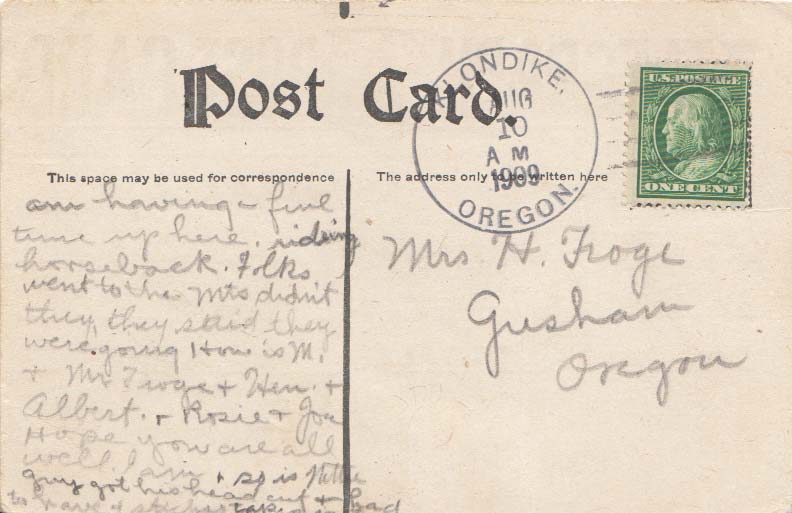 Post Card.
KLONDIKE,
AUG
10
A M
1909
OREGON.
U.S. POSTAGE
ONE CENT
This space may be used for correspondence
The address only to be written here
am having a fine
time up here. riding
horseback. Folks
went to the Mts didn't
they, they said they
were going How is M.
+ Mr Troge + Hen. +
Albert. + Rosie + Joe
Hope you are all
well. I am + so is
guy got his head cut + had
to have
Mrs H. Troge
Gresham
Oregon